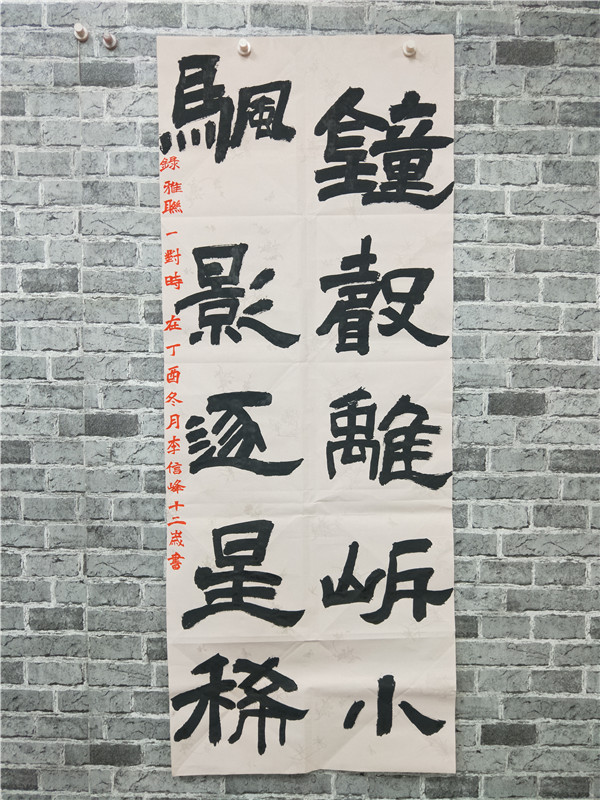 鐘聲離岸小
颿影逐星稀
錄雅聯一對時在丁酉冬月李信峰十二歲書